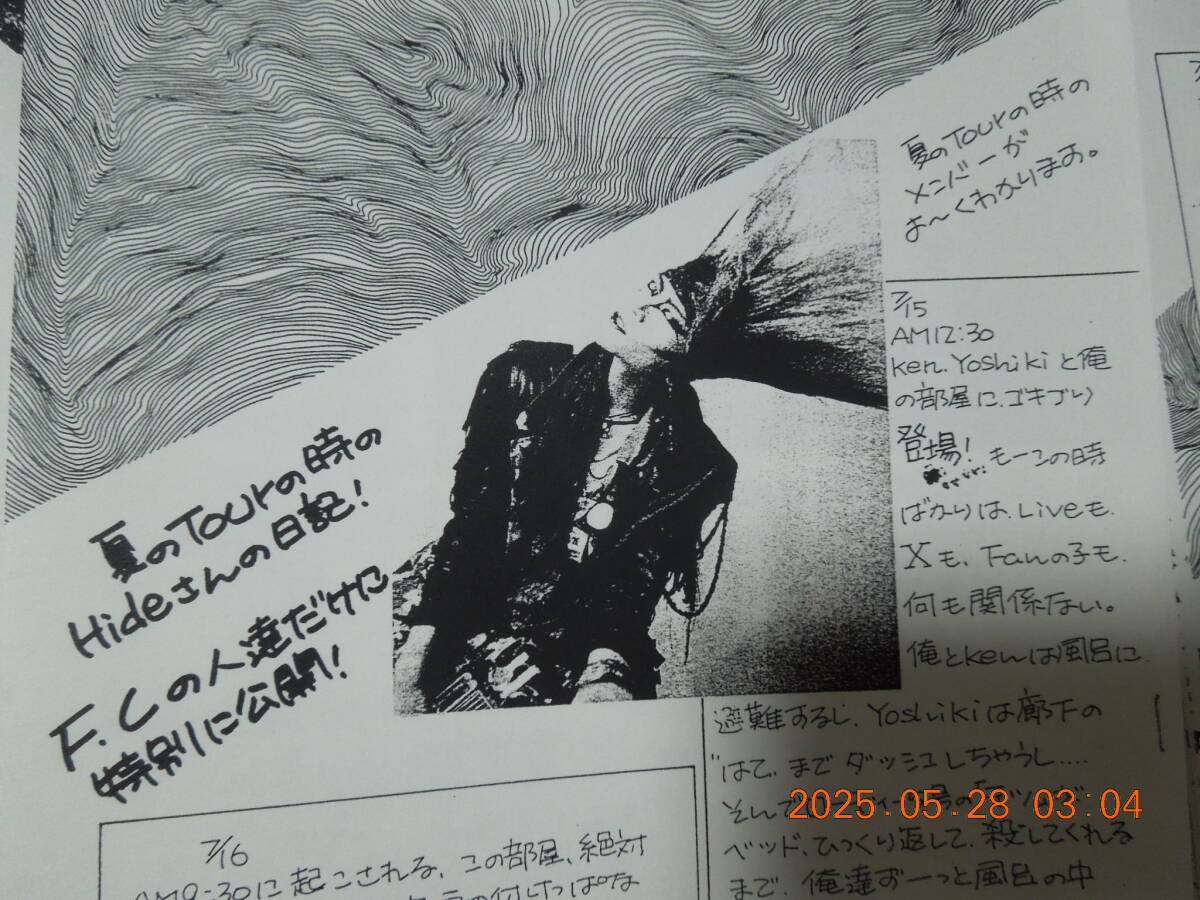 夏のTourの時の
Hideさんの日記!
F.Cの人達だけに
特別に公開!
夏のTourの時の
メンバーが
よ〜くわかります。
7/15
AM12:30
ken.Yoshikiと俺
の部屋に、ゴキブリ
登場! もーこの時
ばかりは、Liveも、
Xも、Fanの子も、
何も関係ない。
俺とkenは風呂に
避難するし、Yoshikiは廊下の
はてまでダッシュしちゃうし....
そんで
ベッド、ひっくり返して、殺してくれる
まで、俺達ずーっと風呂の中
7/16
AM9:30に起こされる、この部屋、絶対
2025.05.28 03:04